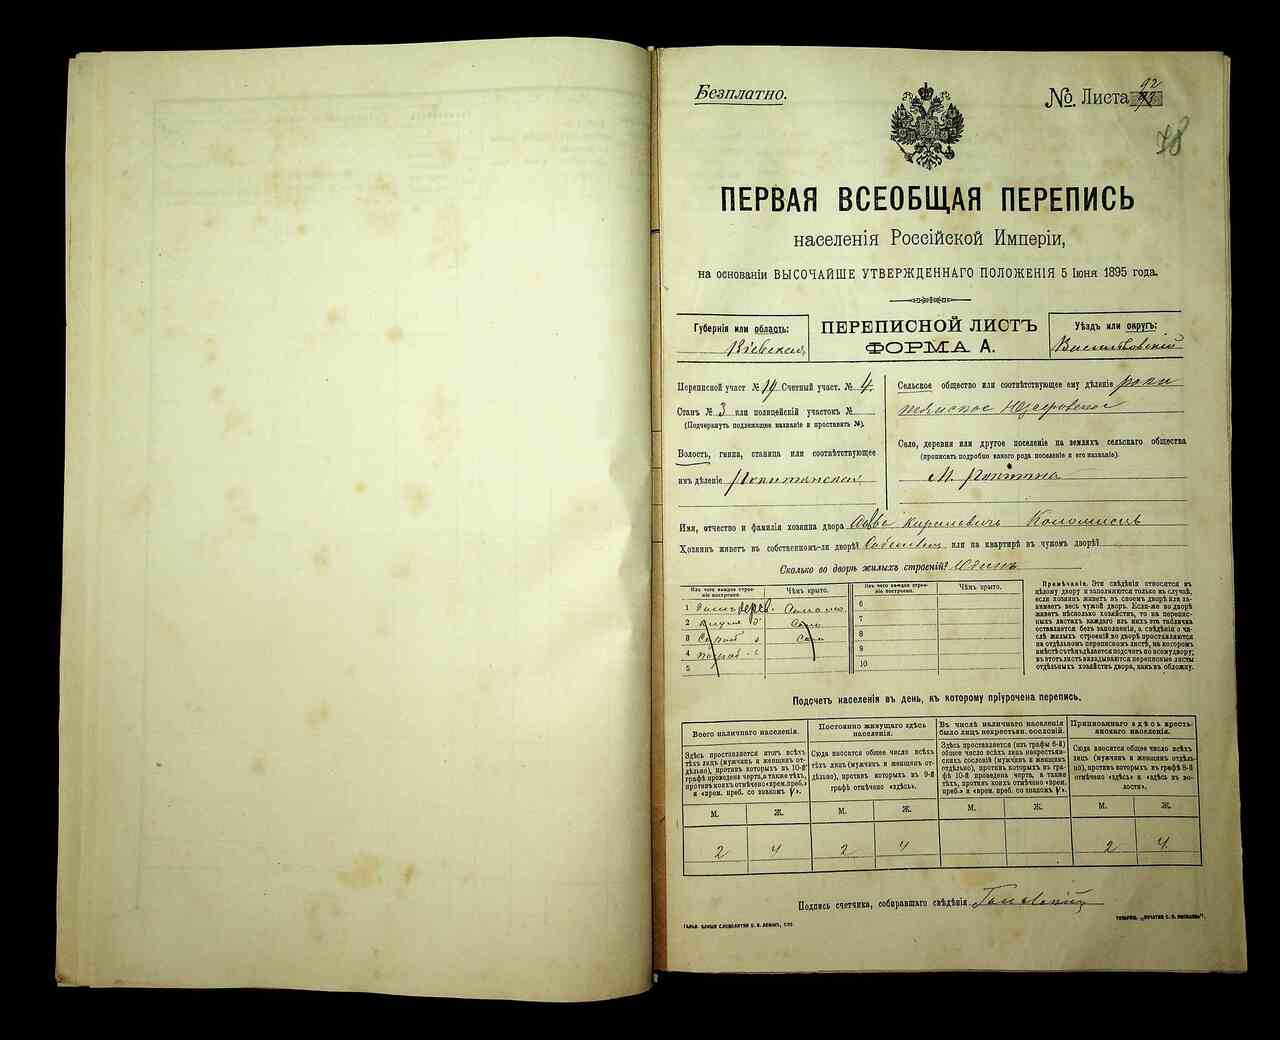 Безплатно.
№. Листа 92
78
ПЕРВАЯ ВСЕОБЩАЯ ПЕРЕПИСЬ
населенія Россійской Имперіи,
на основаніи ВЫСОЧАЙШЕ УТВЕРЖДЕННАГО ПОЛОЖЕНІЯ 5 Іюня 1895 года.
Губернія или область:
Кіевская
ПЕРЕПИСНОЙ ЛИСТЪ
ФОРМА А.
Уѣздъ или округъ:
Васильковскій
Переписной участ № 19 Счетный участ. № 4.
Станъ № 3 или полицейскій участокъ №
(Подчеркнуть подлежащее названіе и проставить №).
Волость, гмина, станица или соотвѣтствующее
имъ дѣленіе
Сельское общество или соотвѣтствующее ему дѣленіе
Село, деревня или другое поселеніе на земляхъ сельскаго общества
(прописать подробно какого рода поселеніе и его названіе).
М.
Имя, отчество и фамилія хозяина двора Кириловичъ Коломиецъ
Хозяинъ живетъ въ собственномъ-ли дворѣ? или на квартирѣ въ чужомъ дворѣ?
Сколько во дворѣ жилыхъ строеній? Одинъ
Изъ чего каждое строеніе построено.
Чѣмъ крыто.
Изъ чего каждое строеніе построено.
Чѣмъ крыто.
1 дерев. Солома
2
3
4
5
6
7
8
9
10
Примѣчаніе. Эти свѣдѣнія относятся къ
цѣлому двору и заполняются только въ случаѣ,
если хозяинъ живетъ въ своемъ дворѣ или занимаетъ
весь чужой дворъ. Если-же во дворѣ
живетъ нѣсколько хозяйствъ, то на переписныхъ
листахъ каждаго изъ нихъ эта табличка
оставляется безъ заполненія, а свѣдѣнія о числѣ
жилыхъ строеній во дворѣ проставляются
на отдѣльномъ переписномъ листѣ, на которомъ
вмѣстѣ съ тѣмъ дѣлается подсчетъ по всему двору;
въ этотъ листъ вкладываются переписные листы
отдѣльныхъ хозяйствъ двора, какъ въ обложку.
Подсчетъ населенія въ день, къ которому пріурочена перепись.
Всего наличнаго населенія.
Постоянно живущаго здѣсь населенія.
Въ числѣ наличнаго населенія было лицъ некрестьян. сословій.
Приписаннаго здѣсь крестьянскаго населенія.
Здѣсь проставляется итогъ всѣхъ
тѣхъ лицъ (мужчинъ и женщинъ отдѣльно),
противъ которыхъ въ 10-й
графѣ проведена черта, а также тѣхъ,
противъ коихъ отмѣчено «врем. преб.»
и «врем. преб. со знакомъ V».
Сюда вносится общее число всѣхъ
тѣхъ лицъ (мужчинъ и женщинъ отдѣльно),
противъ которыхъ въ 9-й
графѣ отмѣчено «здѣсь».
Здѣсь проставляется (изъ графы 6-й)
общее число всѣхъ лицъ некрестьянскихъ
сословій (мужчинъ и женщинъ
отдѣльно), противъ которыхъ въ графѣ
10-й проведена черта, а также
тѣхъ, противъ коихъ отмѣчено «врем.
преб.» и «врем. преб. со знакомъ V».
Сюда вносится общее число всѣхъ
лицъ (мужчинъ и женщинъ отдѣльно),
противъ которыхъ въ графѣ 8-й
отмѣчено «здѣсь» и «здѣсь въ волости».
М. Ж. М. Ж. М. Ж. М. Ж.
2 4 2 4 2 4
Подпись счетчика, собиравшаго свѣдѣнія